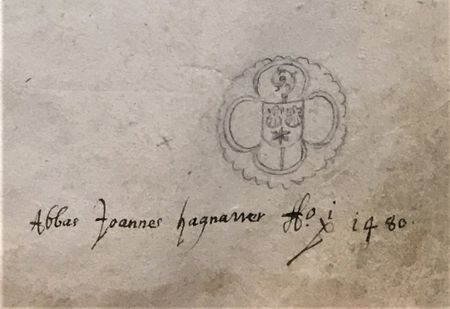 Abbas Joannes hagnawer Ao. xi 1480.